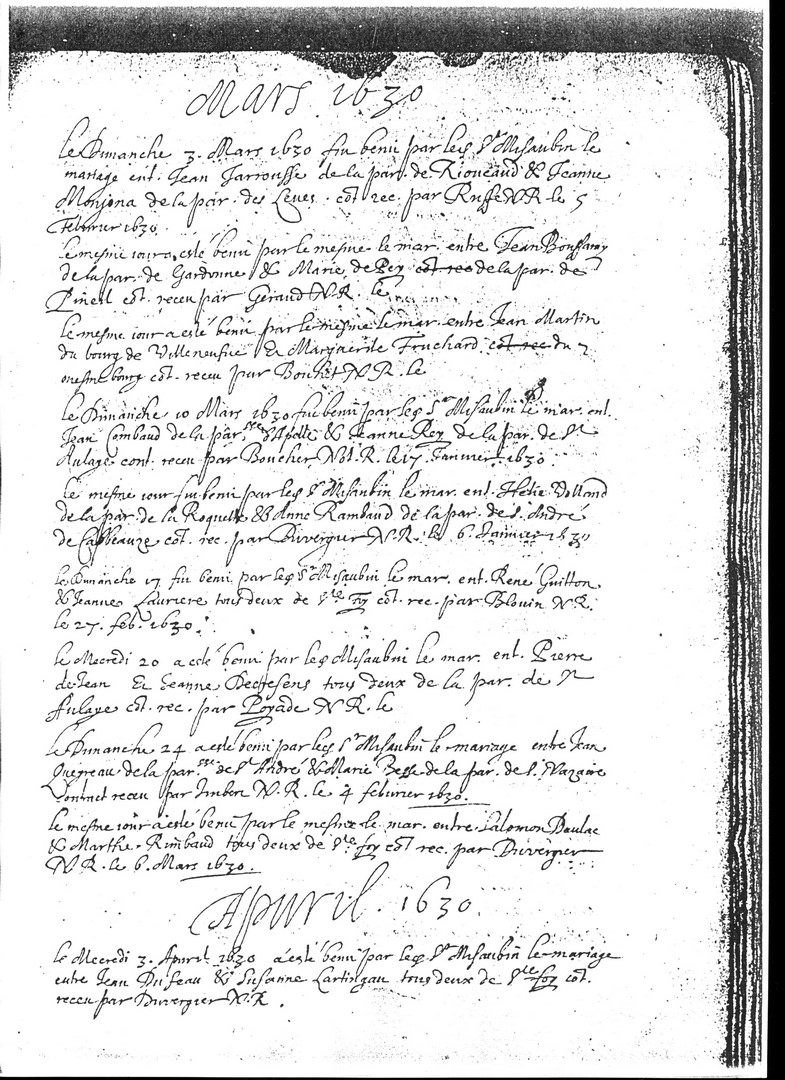 Mars 1630
le Dimanche 3. Mars 1630 fut beni par led Sr Misaubin le
mariage ent. Jean Jarrousse de la par. de Rioucaud & Jeanne
Monjona de la par. des Leves. cot rec. par Ruffe N.R. le 5
febvrier 1630.
le mesme iour a esté beni par le mesme le mar. entre Jean
de la par. de Gardonne & Marie de Rey de la par. de
Pineil cot. receu par Geraud N.R. le
le mesme iour a esté beni par le mesme le mar. entre Jean Martin
du bourg de Villeneufve Et Marguerite Fruchard cot rec du
mesme bourg cot. receu par Bouhet N.R. le
le Dimanche 10 Mars 1630 fut beni par led Sr Misaubin le mar. ent.
Jean Combaud de la par. & Jeanne Rey de la par. de St
Aulaye cont. receu par Boucher Not. R. le 17 Janvier 1630.
le mesme iour fut beni par led Sr Misaubin le mar. ent. Helie Volland
de la par. de la Roquette & Anne Rambaud de la par. de S. André
de par Duvergier N.R. le 6. Janvier 1630
le Dimanche 17 fut beni par led Sr Misaubin le mar. ent. René Guitton
& Jeanne Lauriere tous deux de Ste foy cot. rec. par Blouin N.R.
le 27. feb. 1630.
le Mecredi 20 a esté beni par led Misaubin le mar. ent. Pierre
de Jean Et Jeanne tous deux de la par. de St
Aulaye cot. rec. par Poyade N.R. le
le Dimanche 24 a esté beni par led Sr Misaubin le mariage entre Jean
de la par.sse de St André & Marie de la par. de S. Nazaire
Contract receu par Imbert N.R. le 4 febvrier 1630.
le mesme iour a esté beni par le mesme le mar. entre Salomon Daulac
& Marthe Rimbaud tous deux de Ste foy cot rec. par Duvergier
N.R. le 6. Mars 1630.
Apuril. 1630.
le Mecredi 3. Apuril 1630 a esté beni par led Sr Misaubin le mariage
entre Jean Dufeau & Susanne Lartingau tous deux de Ste foy cot.
receu par Duvergier N.R.